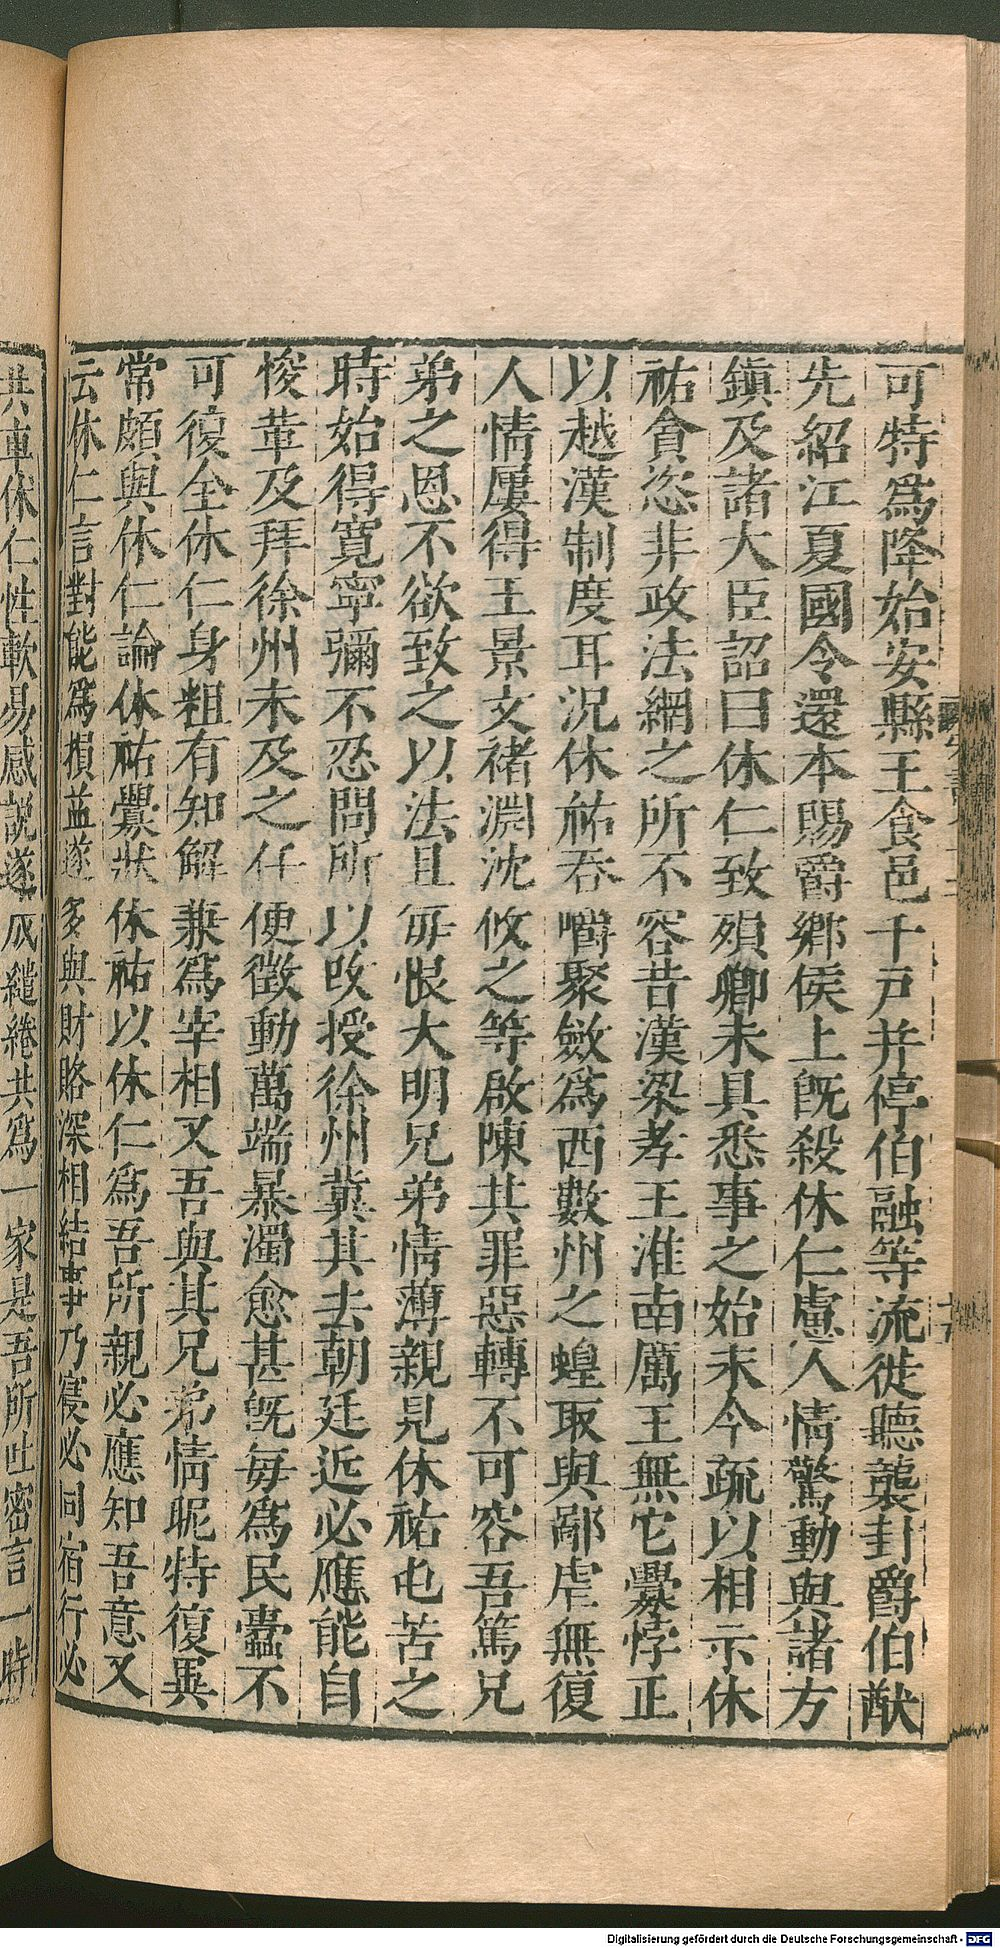 可特爲降始安縣王食邑千戸并停伯融等流徙聽襲封爵伯猷
先紹江夏國令還本賜爵鄉侯上旣殺休仁慮人情驚動與諸方
鎮及諸大臣詔曰休仁致殞卿未具悉事之始末今疏以相示休
祐貪恣非政法網之所不容昔漢梁孝王淮南厲王無它釁悖正
以越漢制度耳況休祐吞嚼聚斂爲西數州之蝗取與鄙虐無復
人情屢得王景文褚淵沈攸之等啟陳其罪惡轉不可容吾篤兄
弟之恩不欲致之以法且每恨大明兄弟情薄親見休祐屯苦之
時始得寬寧彌不忍問所以改授徐州冀其去朝廷近必應能自
悛革及拜徐州未及之任便徵動萬端暴濁愈甚旣每爲民蠹不
可復全休仁身粗有知解兼爲宰相又吾與其兄弟情昵特復異
常頗與休仁論休祐釁狀休祐以休仁爲吾所親必應知吾意又
云休仁言對能爲損益遂多與財賂深相結事乃寑必同宿行必
共車休仁性軟易感說遂成繾綣共爲一家是吾所吐密言一時
Digitalisierung gefördert durch die Deutsche Forschungsgemeinschaft - DFG